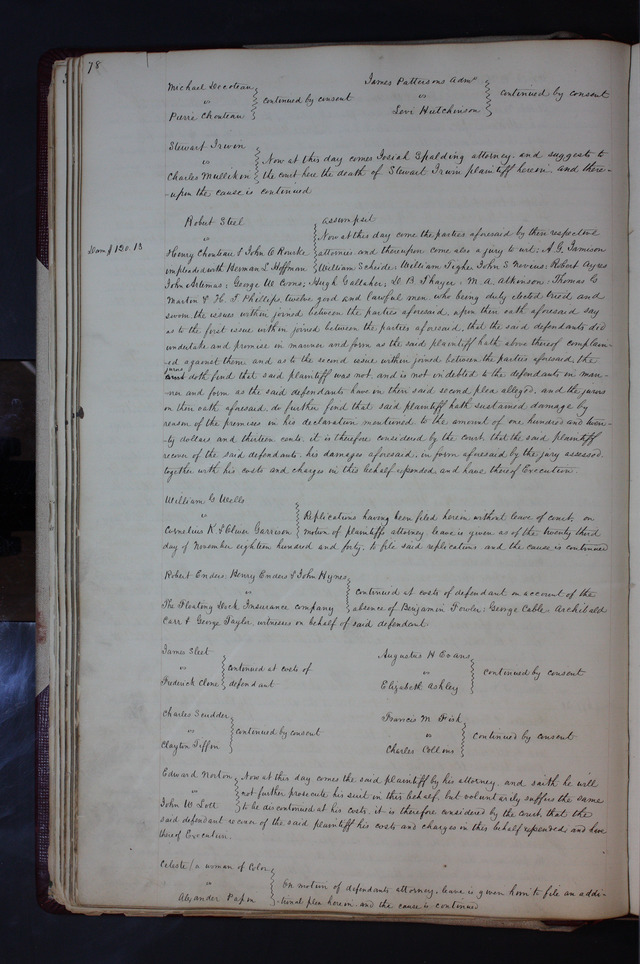 78
Michael Decoteau
vs
Pierre Chouteau
continued by consent
James Pattersons Admr
vs
Levi Hutchinson
continued by consent
Stewart Irwin
vs
Charles Mullikin
Now at this day comes Josiah Spalding attorney, and suggests to
the court here the death of Stewart Irwin plaintiff herein, and there-
-upon the cause is continued
Robert Steel
vs
assumpsit
Dam $ 120.13
Henry Chouteau & John O Rourke
impleaded with Herman L Hoffman
Now at this day come the parties aforesaid by their respective
attornies, and thereupon come also a jury to wit; A. G. Jamison
William Scheide; William Tighe John S Nevius; Robert Ayres
John Artimus; George W Corns; Hugh Gallaher; D. B. Thayer; M. A. Atkinson; Thomas G
Martin & H. T. Phillips twelve good and lawful men who being duly elected tried and
sworn the issues within joined between the parties aforesaid, upon their oath aforesaid say
as to the first issue within joined between the parties aforesaid, that the said defendants did
undertake and promise in manner and form as the said plaintiff hath above thereof complain-
-ed against them and as to the second issue within joined between the parties aforesaid, the
jurors
court doth find that said plaintiff was not, and is not indebted to the defendants in man-
-ner and form as the said defendants have in their said second plea alleged; and the jurors
on their oath aforesaid, do further find that said plaintiff hath sustained damage by
reason of the premises in his declaration mentioned to the amount of one hundred and twen-
-ty dollars and thirteen cents. it is therefore considered by the court that the said plaintiff
recover of the said defendants, his damages aforesaid, in form aforesaid by the jury assessed,
together with his costs and charges in this behalf expended and have thereof Execution.
William G Wells
vs
Cornelius K & Oliver Garrison
Replications having been filed herein without leave of court, on
motion of plaintiffs attorney leave is given as of the twenty third
day of November eighteen hundred and forty, to file said replications and the cause is continued
Robert Enders, Henry Enders & John Hynes
vs
The Floating Dock Insurance company
continued at costs of defendant on account of the
absence of Benjamin Fowler; George Cable, Archibald
Carr & George Taylor, witnesses on behalf of said defendant.
James Sleet
vs
Frederick Clone
continued at costs of
defendant
Augustus H Evans
vs
Elizabeth Ashley
continued by consent
Charles Scudder
vs
Clayton Tiffin
continued by consent
Francis M Fish
vs
Charles Collons
continued by consent
Edward Norton
vs
John W Lott
Now at this day comes the said plaintiff by his attorney, and saith he will
not further prosecute his suit in this behalf, but voluntarily suffers the same
to be discontinued at his costs, it is therefore considered by the court, that the
said defendant recover of the said plaintiff his costs and charges in this behalf expended and have
thereof Execution.
Celeste / a woman of Color
vs
Alexander Papin
On motion of defendants attorney, leave is given him to file an addi-
-tional plea herein, and the cause is continued